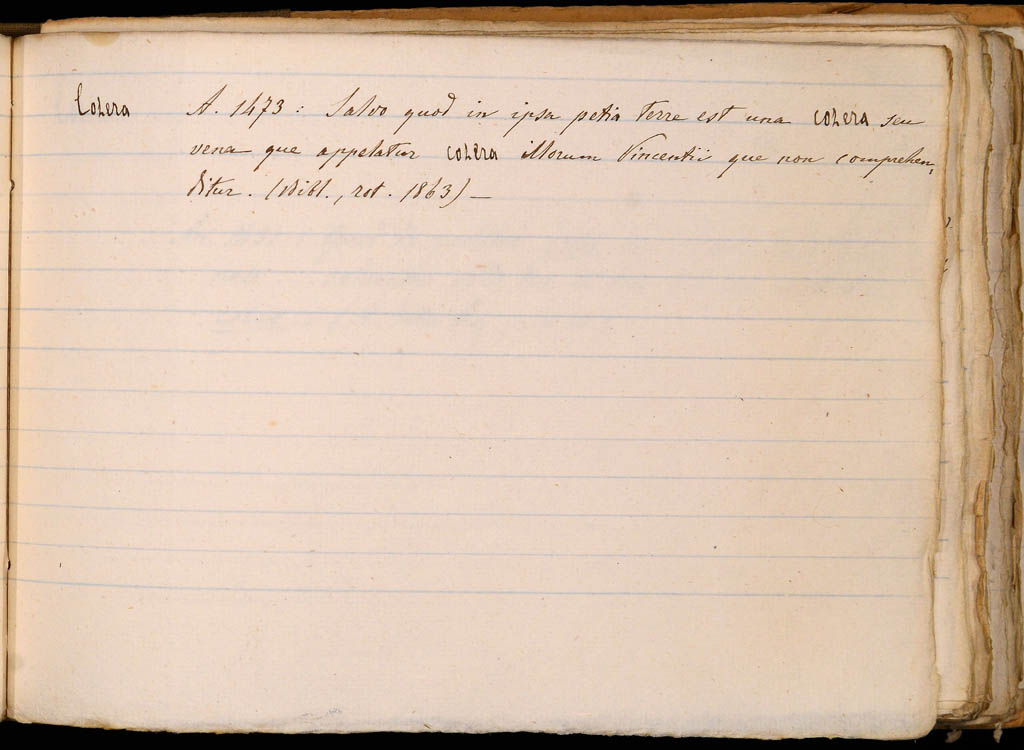 Colera A. 1473 : Salvo quod in ipsa petia terre est una colera seu
vena que appelatur colera illorum Vincentii que non comprehen,
ditur. (Bibl., rot. 1863) —